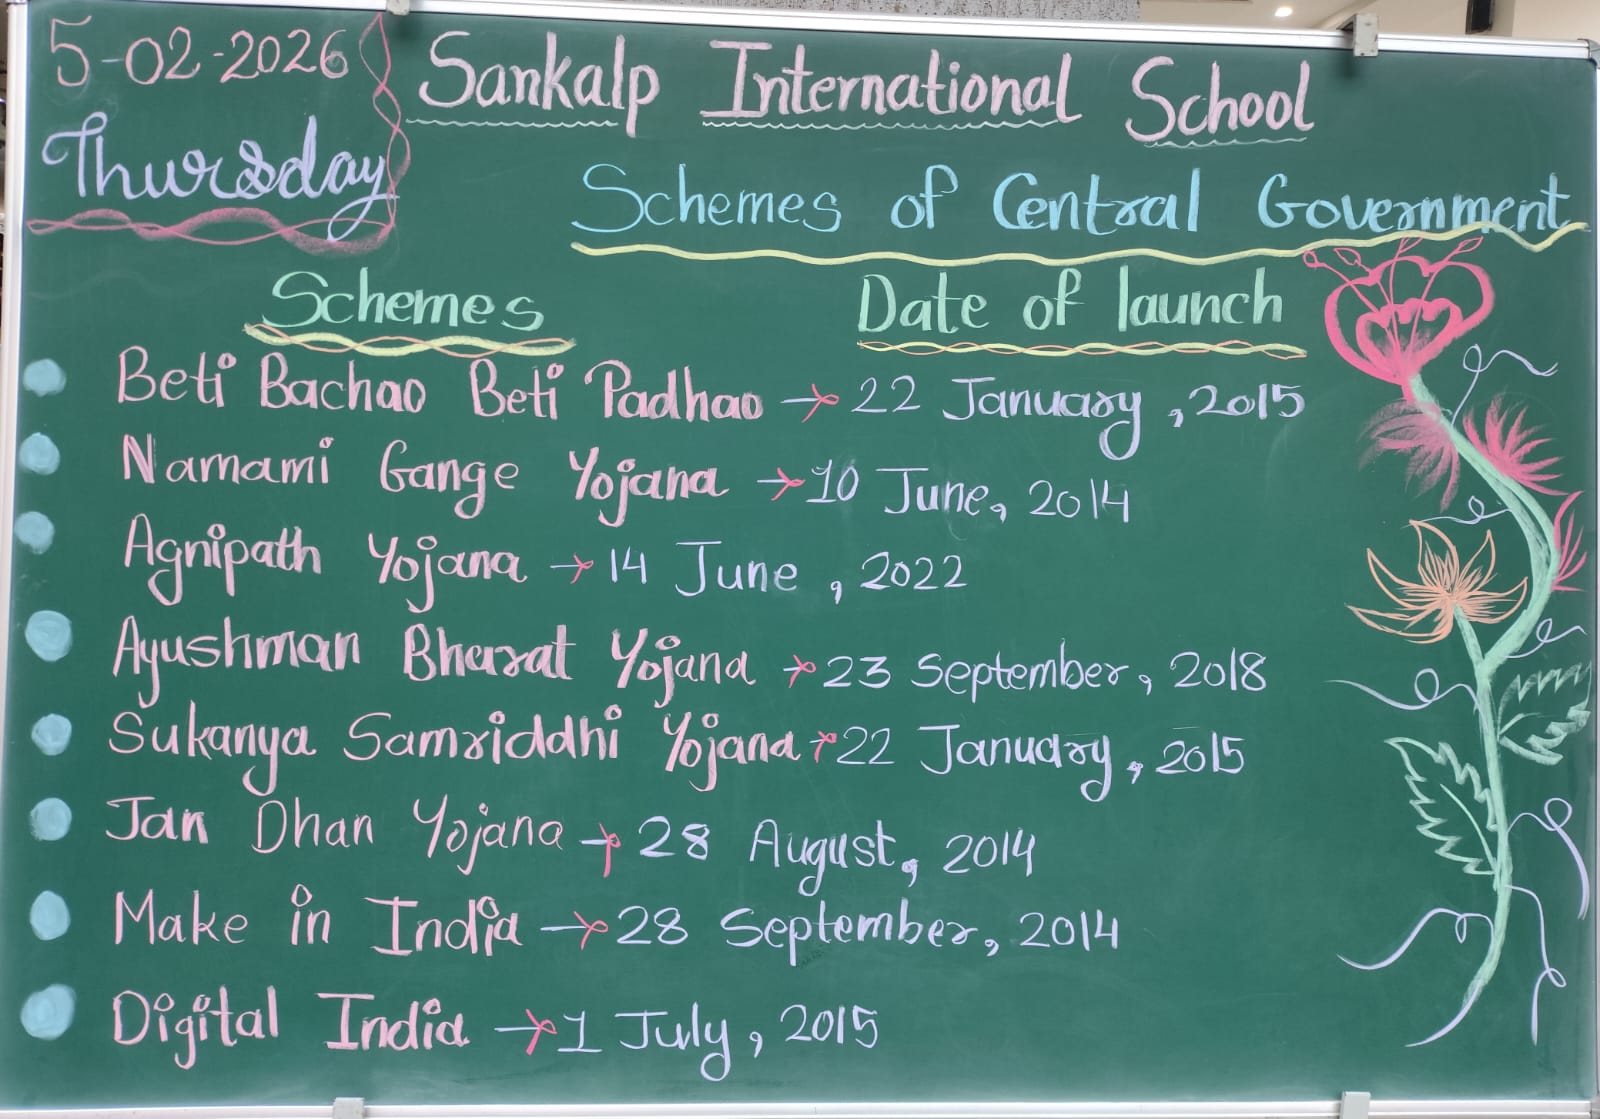 5-02-2026
Thursday
Sankalp International School
Schemes of Central Government
Schemes Date of launch
Beti Bachao Beti Padhao → 22 January, 2015
Namami Gange Yojana → 10 June, 2014
Agnipath Yojana → 14 June, 2022
Ayushman Bharat Yojana → 23 September, 2018
Sukanya Samriddhi Yojana → 22 January, 2015
Jan Dhan Yojana → 28 August, 2014
Make in India → 28 September, 2014
Digital India → 1 July, 2015